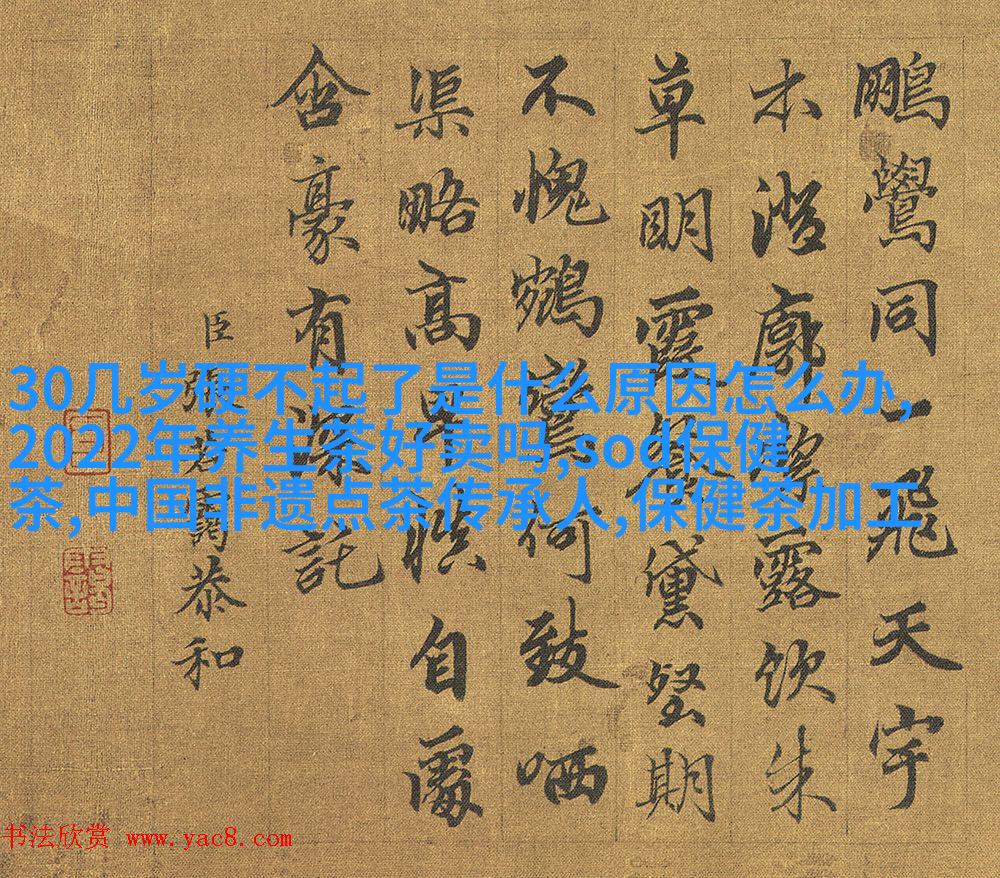 鵬鷽同一飛天宇
本澄廓絳露飲朱
草明霞餐黛壑期
不愧鵷鸞何致哂
渠略高卑惧自屬
含豪有深託
臣張若靄恭和
30几岁硬不起了是什么原因怎么办,
2022年养生茶好卖吗,sod保健
茶,中国非遗点茶传承人,保健茶加工
书法欣赏 www.yac8.com